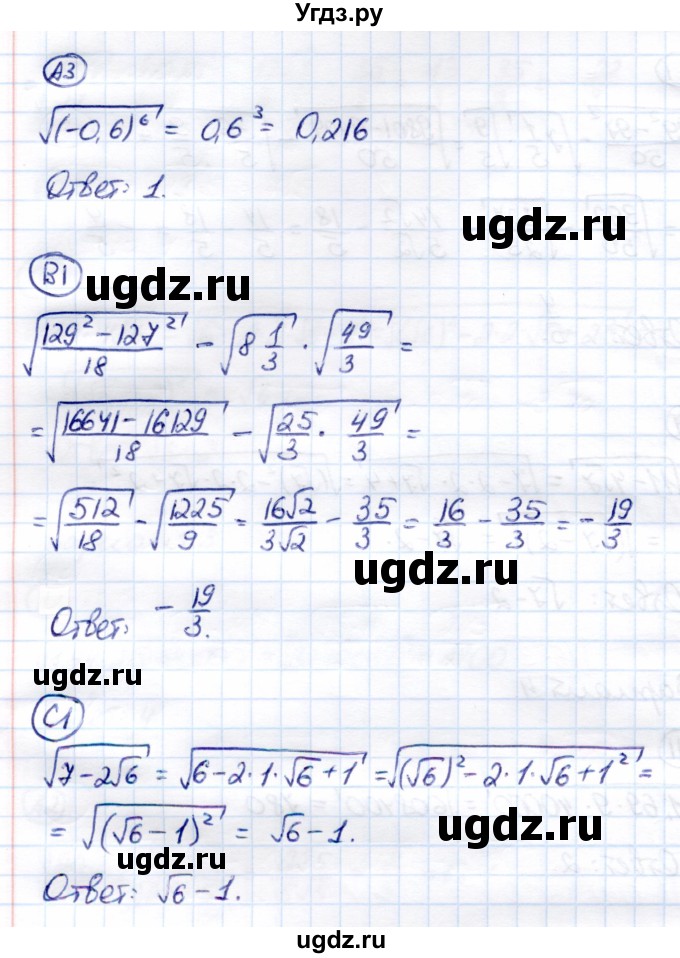 Угдз.ру
А3
√((-0,6)^6) = 0,6^3 = 0,216
Ответ: 1.
ugdz.ru
В1
ugdz.ru
√((129^2 - 127^2)/18) - √(8 1/3) · √(49/3) =
= √((16641 - 16129)/18) - √(25/3 · 49/3) =
= √(512/18) - √(1225/9) = 16√2/3√2 - 35/3 = 16/3 - 35/3 = - 19/3
ugdz.ru
Ответ: - 19/3.
ugdz.ru
С1
√(7 - 2√6) = √(6 - 2·1·√6 + 1) = √((√6)^2 - 2·1·√6 + 1^2) =
= √((√6 - 1)^2) = √6 - 1.
ugdz.ru
ugdz.ru
Ответ: √6 - 1.
ugdz.ru